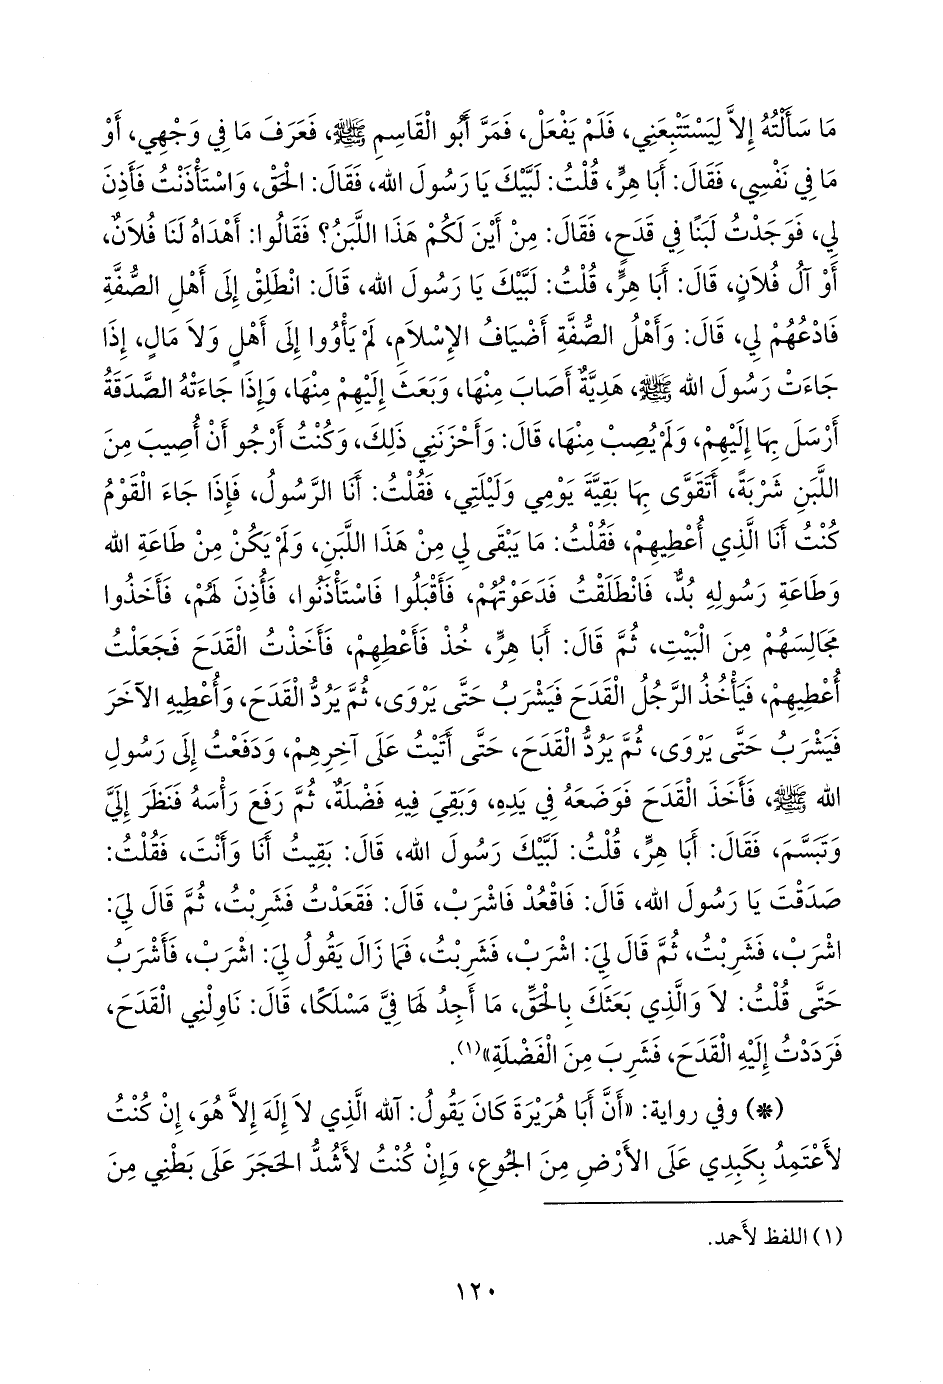 مَا سَأَلْتُهُ إِلاَّ لِيَسْتَتْبِعَنِي، فَلَمْ يَفْعَلْ، فَمَرَّ أَبُو الْقَاسِمِ ﷺ، فَعَرَفَ مَا فِي وَجْهِي، أَوْ
مَا فِي نَفْسِي، فَقَالَ: أَبَا هِرٍّ، قُلْتُ: لَبَّيْكَ يَا رَسُولَ الله، فَقَالَ: الْحَقْ، وَاسْتَأْذَنْتُ فَأَذِنَ
لِي، فَوَجَدْتُ لَبَنًا فِي قَدَحٍ، فَقَالَ: مِنْ أَيْنَ لَكُمْ هَذَا اللَّبَنُ؟ فَقَالُوا: أَهْدَاهُ لَنَا فُلاَنٌ،
أَوْ آلُ فُلاَنٍ، قَالَ: أَبَا هِرٍّ، قُلْتُ: لَبَّيْكَ يَا رَسُولَ الله، قَالَ: انْطَلِقْ إِلَى أَهْلِ الصُّفَّةِ
فَادْعُهُمْ لِي، قَالَ: وَأَهْلُ الصُّفَّةِ أَضْيَافُ الإِسْلاَمِ، لَمْ يَأْوُوا إِلَى أَهْلٍ وَلاَ مَالٍ، إِذَا
جَاءَتْ رَسُولَ الله ﷺ، هَدِيَّةٌ أَصَابَ مِنْهَا، وَبَعَثَ إِلَيْهِمْ مِنْهَا، وَإِذَا جَاءَتْهُ الصَّدَقَةُ
أَرْسَلَ بِهَا إِلَيْهِمْ، وَلَمْ يُصِبْ مِنْهَا، قَالَ: وَأَحْزَنَنِي ذَلِكَ، وَكُنْتُ أَرْجُو أَنْ أُصِيبَ مِنَ
اللَّبَنِ شَرْبَةً، أَتَقَوَّى بِهَا بَقِيَّةَ يَوْمِي وَلَيْلَتِي، فَقُلْتُ: أَنَا الرَّسُولُ، فَإِذَا جَاءَ الْقَوْمُ
كُنْتُ أَنَا الَّذِي أُعْطِيهِمْ، فَقُلْتُ: مَا يَبْقَى لِي مِنْ هَذَا اللَّبَنِ، وَلَمْ يَكُنْ مِنْ طَاعَةِ الله
وَطَاعَةِ رَسُولِهِ بُدٌّ، فَانْطَلَقْتُ فَدَعَوْتُهُمْ، فَأَقْبَلُوا فَاسْتَأْذَنُوا، فَأُذِنَ لَهُمْ، فَأَخَذُوا
مَجَالِسَهُمْ مِنَ الْبَيْتِ، ثُمَّ قَالَ: أَبَا هِرٍّ، خُذْ فَأَعْطِهِمْ، فَأَخَذْتُ الْقَدَحَ فَجَعَلْتُ
أُعْطِيهِمْ، فَيَأْخُذُ الرَّجُلُ الْقَدَحَ فَيَشْرَبُ حَتَّى يَرْوَى، ثُمَّ يَرُدُّ الْقَدَحَ، وَأُعْطِيهِ الآخَرَ
فَيَشْرَبُ حَتَّى يَرْوَى، ثُمَّ يَرُدُّ الْقَدَحَ، حَتَّى أَتَيْتُ عَلَى آخِرِهِمْ، وَدَفَعْتُ إِلَى رَسُولِ
الله ﷺ، فَأَخَذَ الْقَدَحَ فَوَضَعَهُ فِي يَدِهِ، وَبَقِيَ فِيهِ فَضْلَةٌ، ثُمَّ رَفَعَ رَأْسَهُ فَنَظَرَ إِلَيَّ
وَتَبَسَّمَ، فَقَالَ: أَبَا هِرٍّ، قُلْتُ: لَبَّيْكَ رَسُولَ الله، قَالَ: بَقِيتُ أَنَا وَأَنْتَ، فَقُلْتُ:
صَدَقْتَ يَا رَسُولَ الله، قَالَ: فَاقْعُدْ فَاشْرَبْ، قَالَ: فَقَعَدْتُ فَشَرِبْتُ، ثُمَّ قَالَ لِيَ:
اشْرَبْ، فَشَرِبْتُ، ثُمَّ قَالَ لِيَ: اشْرَبْ، فَشَرِبْتُ، فَمَا زَالَ يَقُولُ لِيَ: اشْرَبْ، فَأَشْرَبُ
حَتَّى قُلْتُ: لاَ وَالَّذِي بَعَثَكَ بِالْحَقِّ، مَا أَجِدُ لَهَا فِيَّ مَسْلَكًا، قَالَ: نَاوِلْنِي الْقَدَحَ،
فَرَدَدْتُ إِلَيْهِ الْقَدَحَ، فَشَرِبَ مِنَ الْفَضْلَةِ»(١).
(*) وفي رواية: «أَنَّ أَبَا هُرَيْرَةَ كَانَ يَقُولُ: آلله الَّذِي لاَ إِلَهَ إِلاَّ هُوَ، إِنْ كُنْتُ
لأَعْتَمِدُ بِكَبِدِي عَلَى الأَرْضِ مِنَ الجُوعِ، وَإِنْ كُنْتُ لأَشُدُّ الحَجَرَ عَلَى بَطْنِي مِنَ
(١) اللفظ لأَحمد.
١٢٠